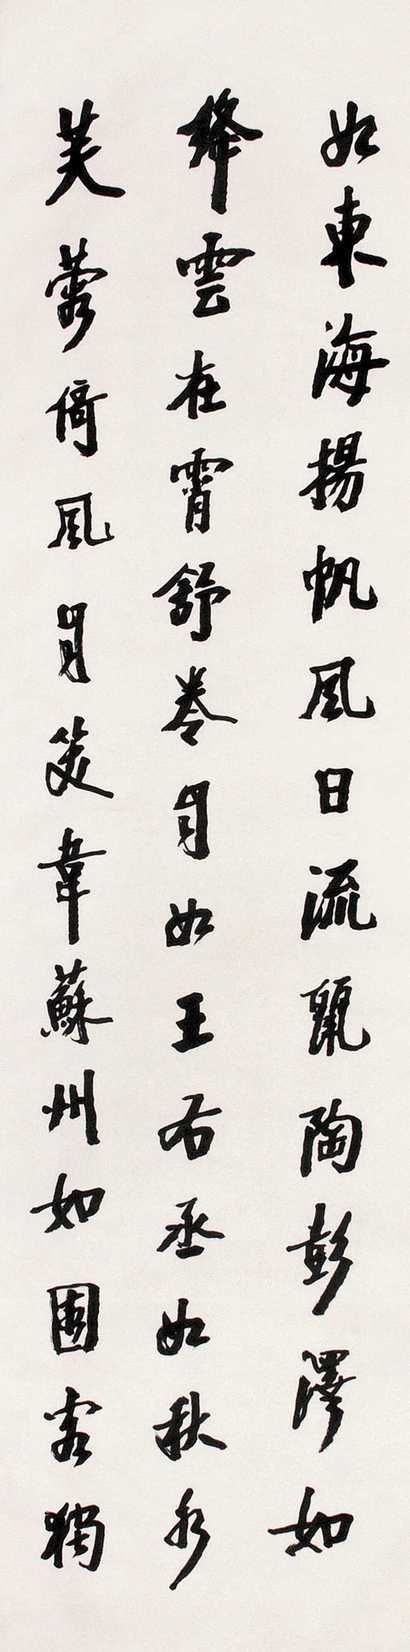 如東海揚帆風日流麗陶彭澤如
絳雲在霄舒卷自如王右丞如秋水
芙蓉倚風自笑韋蘇州如園客獨